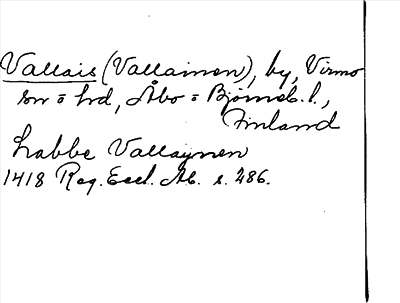 Vallais (Vallainen), by, Virmo
sn o hd, Åbo o Björneb. l.,
Finland
Labbe Vallaynen
1418 Reg. Eccl. Ab. s. 286.